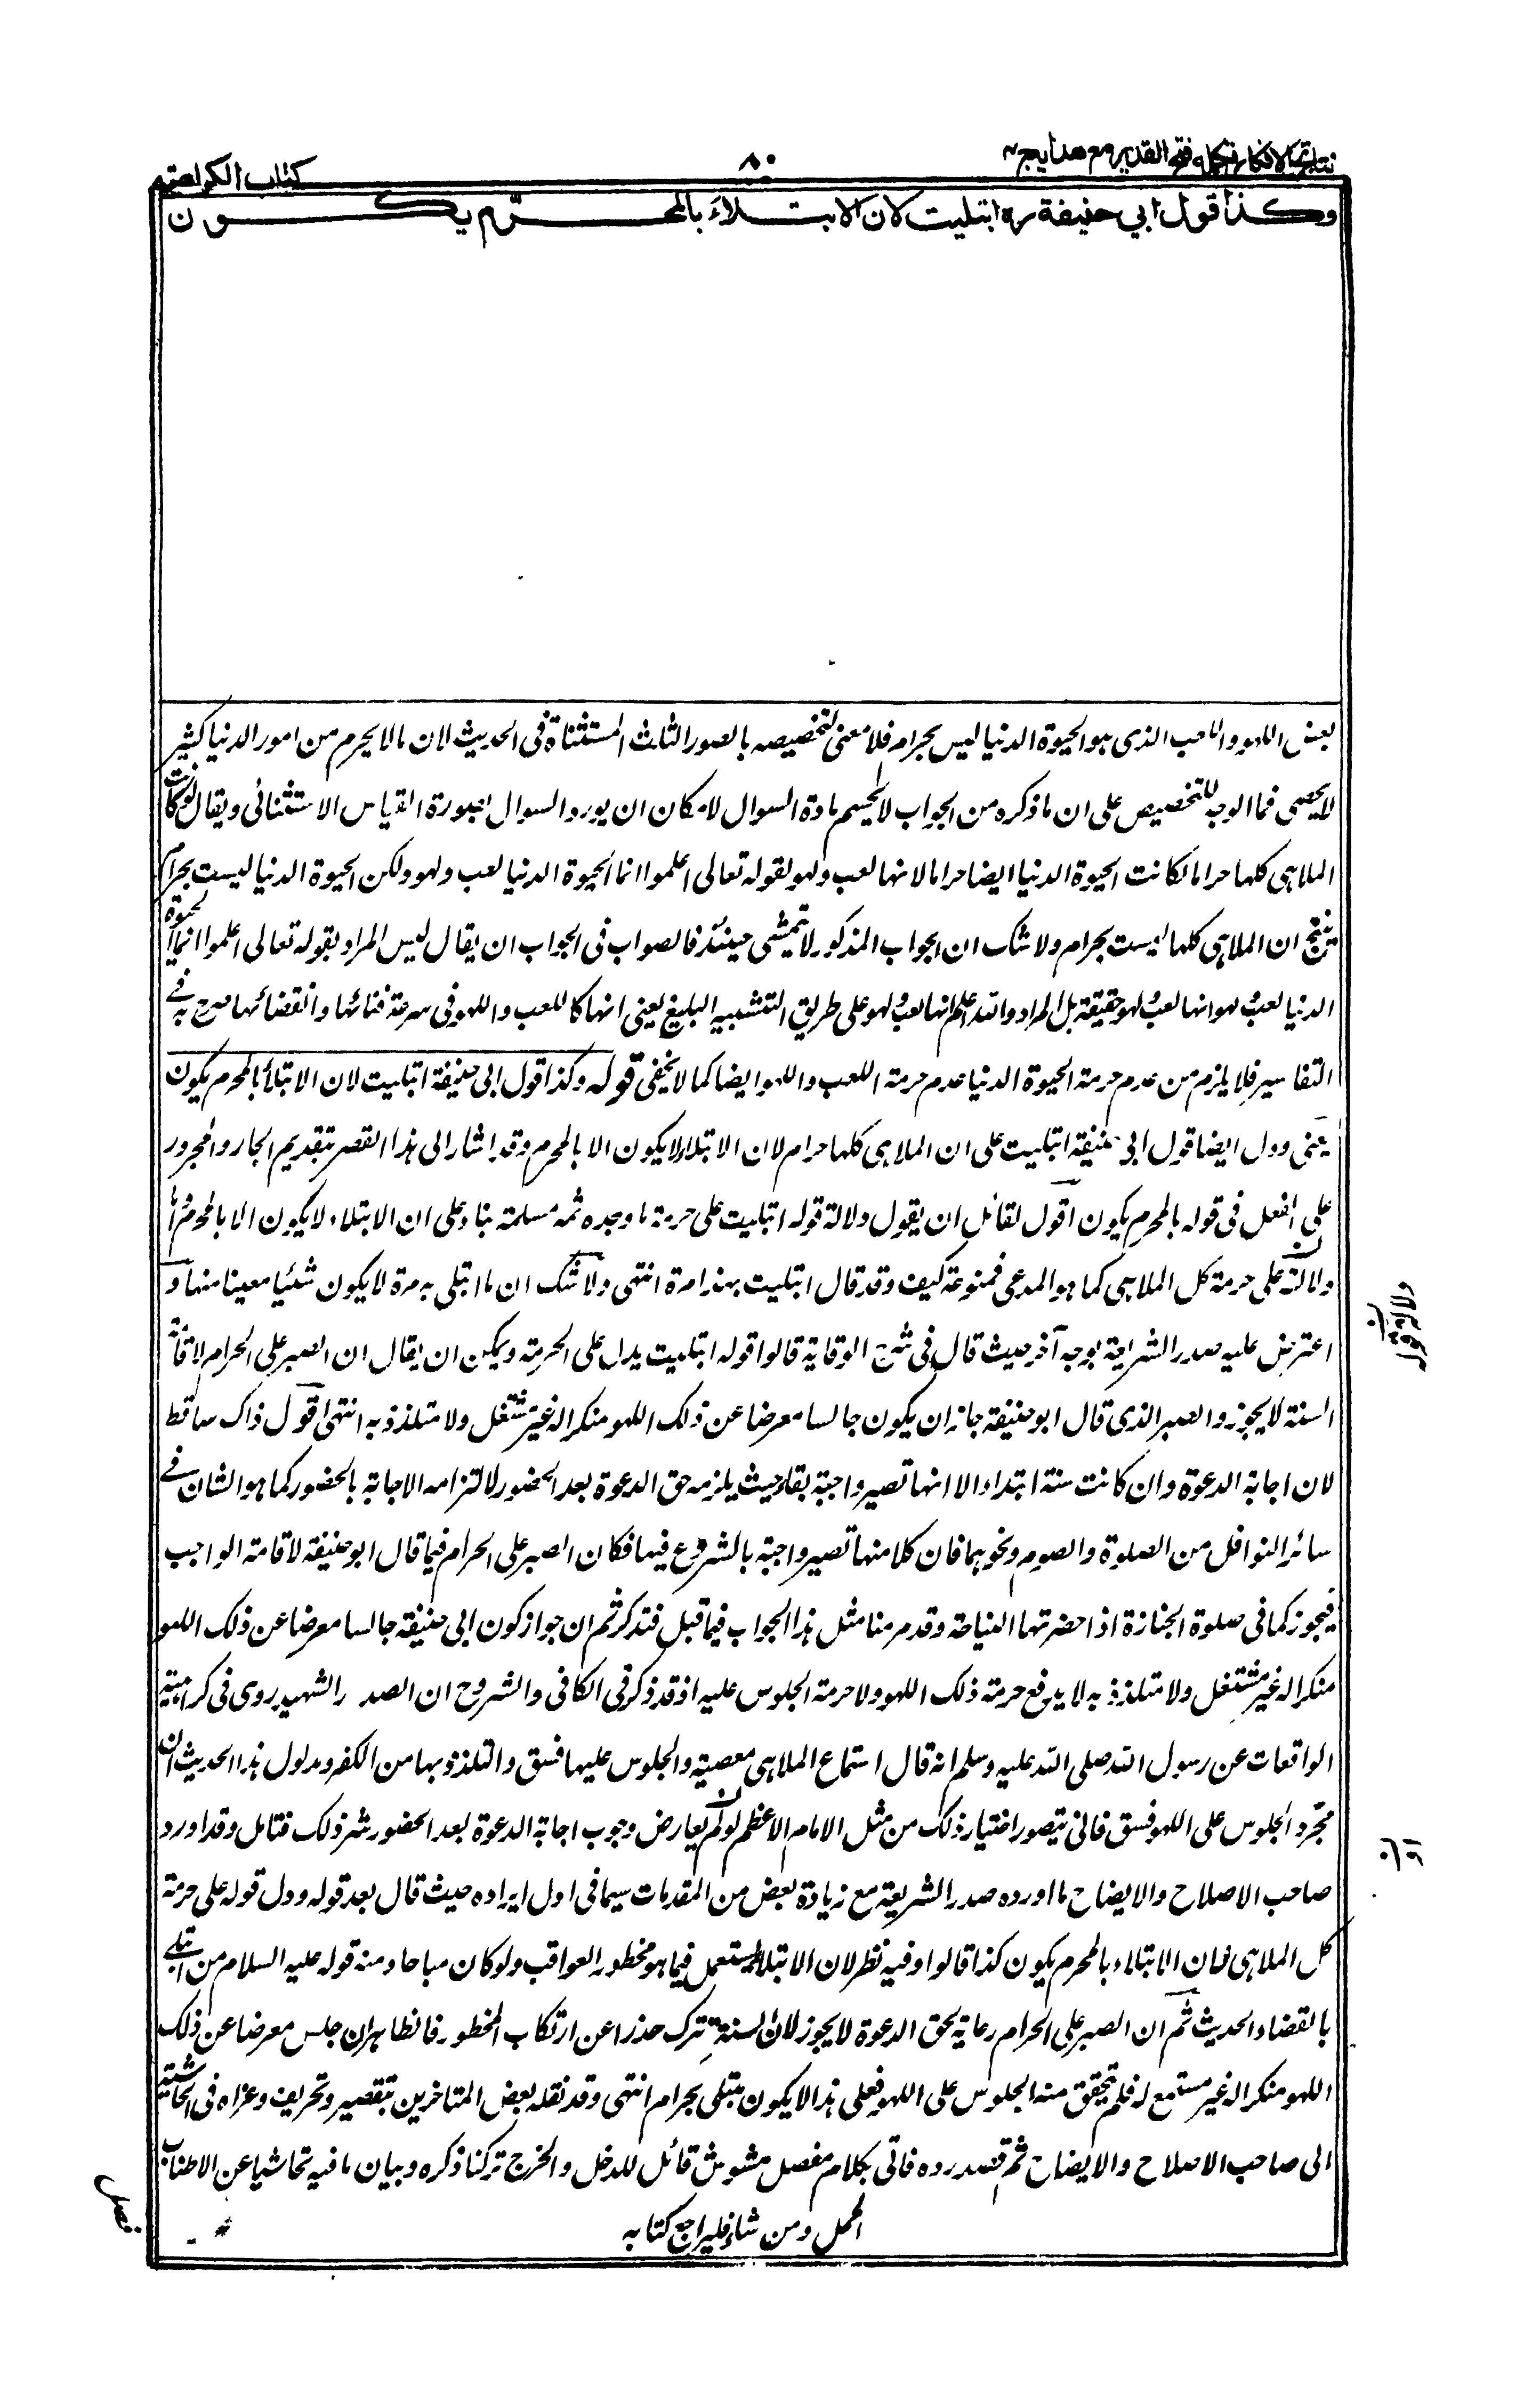 نتائج الافكار تكملة فتح القدير مع هدايه ج ٤
٨٠
كتاب الكراهية
وكذا قول ابي حنيفة ره ابتليت لان الابتلاء بالمحرّم يكون
بعض اللهو واللعب الذى هو الحيوة الدنيا ليس بحرام فلا معنى لتخصيصه بالصور الثلث المستثناة فى الحديث الان مالا يحرم من امور الدنيا كثير
لايحصى فما الوجه للتخصيص على ان ما ذكره من الجواب لا يحسم مادة السوال لامكان ان يورد السوال بصورة القياس الاستثنائى ويقال لو كانت
الملاهى كلها حراما لكانت الحيوة الدنيا ايضا حراما لانها لعب ولهو لقوله تعالى اعلموا انما الحيوة الدنيا لعب ولهو ولكن الحيوة الدنيا ليست بحرام
ينتج ان الملاهى كلها ليست بحرام ولا شك ان الجواب المذكور لا يتمشى حينئذ فالصواب فى الجواب ان يقال ليس المراد بقوله تعالى اعلموا انما الحيوة
الدنيا لعب ولهو انها لعب ولهو حقيقة بل المراد والله اعلم انها لعب ولهو على طريق التشبيه البليغ يعنى انها كاللعب واللهو فى سرعة فنائها وانقضائها صرح به فى
التفاسير فلا يلزم من عدم حرمة الحيوة الدنيا عدم حرمة اللعب واللهو ايضا كما لا يخفى قوله وكذا قول ابى حنيفة ابتليت لان الابتلاء بالمحرم يكون
يعنى ودل ايضا قول ابى حنيفة ابتليت على ان الملاهى كلها حرام لان الابتلاء لا يكون الا بالمحرم وقد اشار الى هذا القصر بتقديم الجار والمجرور
على الفعل فى قوله بالمحرم يكون اقول لقائل ان يقول دلالة قوله ابتليت على حرمة ما وجده ثمه مسلمة بناء على ان الابتلاء لا يكون الا بالمحرم واما
دلالته على حرمة كل الملاهى كما هو المدعى فممنوعة كيف وقد قال ابتليت بهذا مرة انتهى ولا شك ان ما ابتلى به مرة لا يكون شيئا معينا منها و
اعترض عليه صدر الشريعة بوجه آخر حيث قال فى شرح الوقاية قالوا قوله ابتليت يدل على الحرمة ويمكن ان يقال ان الصبر على الحرام لاقامة
السنة لا يجوز والصبر الذى قال ابو حنيفة جاز ان يكون جالسا معرضا عن ذلك اللهو منكرا له غير مشتغل ولا متلذذ به انتهى اقول ذاك ساقط
لان اجابة الدعوة وان كانت سنة ابتداء الا انها تصير واجبة بقاء حيث يلزمه حق الدعوة بعد الحضور لالتزامه الاجابة بالحضور كما هو الشان فى
سائر النوافل من الصلوة والصوم ونحوهما فان كلا منها تصير واجبة بالشروع فيها فكان الصبر على الحرام فيما قال ابو حنيفة لاقامة الواجب
فيجوز كما فى صلوة الجنازة اذا حضرتها النياحة وقد مر منا مثل هذا الجواب فيما قبل فتذكر ثم ان جواز كون ابى حنيفة جالسا معرضا عن ذلك اللهو
منكرا له غير مشتغل ولا متلذذ به لا يدفع حرمة ذلك اللهو ولا حرمة الجلوس عليه اذ قد ذكر فى الكافى والشروح ان الصدر الشهيد روى فى كراهية
الواقعات عن رسول الله صلى الله عليه وسلم انه قال استماع الملاهى معصية والجلوس عليها فسق والتلذذ بها من الكفر ومدلول هذا الحديث ان
مجرد الجلوس على اللهو فسق فانى يتصور اختيار ذلك من مثل الامام الاعظم لو لم يعارض وجوب اجابة الدعوة بعد الحضور شر ذلك فتامل وقد اورد
صاحب الاصلاح والايضاح ما اورده صدر الشريعة مع زيادة بعض من المقدمات سيما فى اول ايراده حيث قال بعد قوله ودل قوله على حرمة
كل الملاهى لان الابتلاء بالمحرم يكون كذا قالوا وفيه نظر لان الابتلاء يستعمل فيما هو محظور العواقب ولو كان مباحا ومنه قوله عليه السلام من ابتلى
بالقضاء الحديث ثم ان الصبر على الحرام رعاية لحق الدعوة لا يجوز لان السنة تترك حذرا عن ارتكاب المحظور فالظاهر ان جلس معرضا عن ذلك
اللهو منكرا له غير مستمع له فلم يتحقق منه الجلوس على اللهو فعلى هذا لا يكون مبتلى بحرام انتهى وقد نقله بعض المتاخرين بتقصير وتحريف وعزاه فى الحاشية
الى صاحب الاصلاح والايضاح ثم قصد رده فاتى بكلام مفصل مشوش قائل للدخل والخرج تركنا ذكره وبيان ما فيه تحاشيا عن الاطناب
الممل ومن شاء فليراجع كتابه
فصل
دلالة قوله